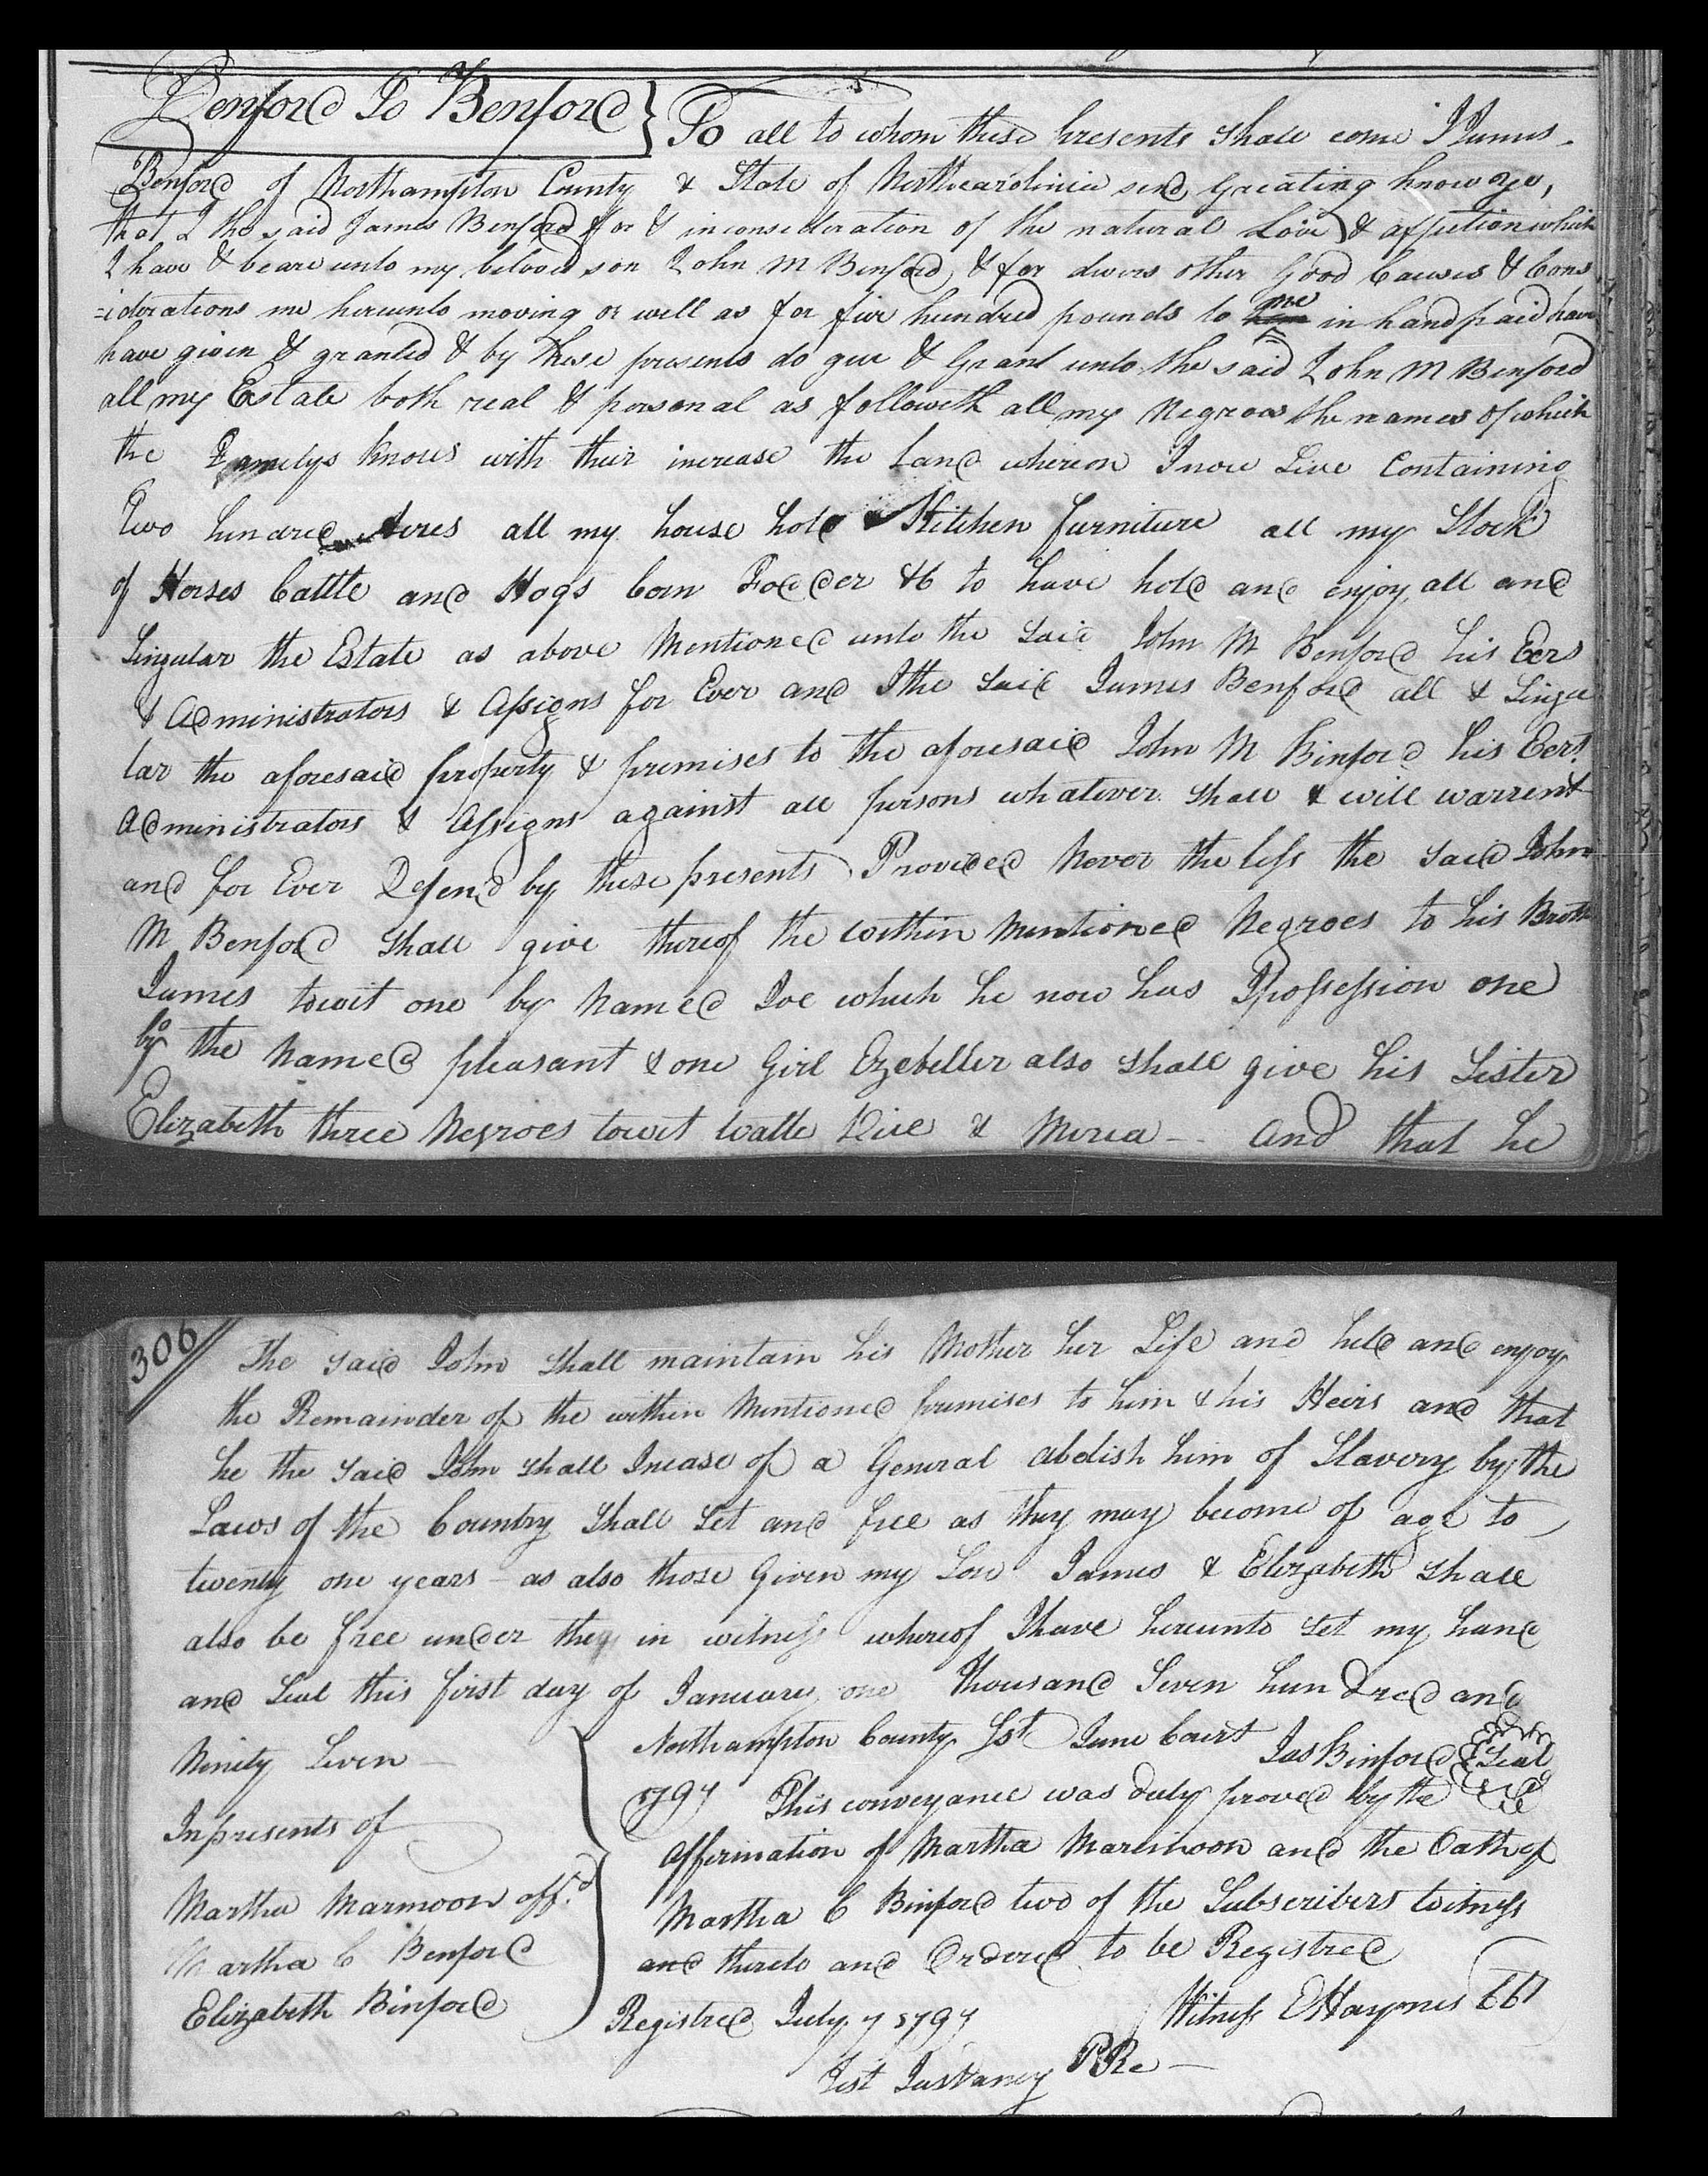 Benford To Benford } To all to whom these presents shall come I James
Benford of Northampton County & State of Northcarolinia send Greating know ye,
that I the said James Benford for & inconsideration of the natural Love & affiction which
I have & beare unto my beloved son John M Benford, & for divers other Good Causes & Cons
=iderations me hereunto moving as well as for five hundred pounds to me in hand paid have
have given & granted & by these presents do give & Grant unto the said John M Benford
all my Estate both real & personal as followeth all my Negroes the names of which
the Familys knows with their increase the Land whereon I now Live Containing
Two hundred Acres all my house hold & Kitchen furniture all my Stock
of Horses Cattle and Hogs Corn Fodder &C to have hold and enjoy all and
Singular the Estate as above Mentioned unto the said John M Benford his Eers
& Administrators & Assigns for Ever and I the said James Benford all & Singu
lar the aforesaid property & premises to the aforesaid John M Binford his Eers.
Administrators & Assigns against all persons whatever shall & will warrent
and for Ever Defend by these presents Provided Never the less the said John
M Benford shall give thereof the within Mentioned Negroes to his Broth
James towit one by Named Joe which he now has Ipossession one
bo
by the Named pleasant & one Girl Ezebeller also shall give his Sister
Elizabeth three Negroes towit Watte Dice & Meria -- And that he
306
The said John shall maintain his Mother her Life and held and enjoy
the Remainder of the within Mentioned premises to him & his Heirs and that
he the said John shall Incase of a General abolish him of Slavery by the
Laws of the Country shall set and free as they may become of age to
twenty one years - as also those Given my Son James & Elizabeth shall
also be free under they in witness whereof I have hereunto set my hand
and Seal this first day of January one Thousand Seven hundred and
Ninety Seven —
Northampton County Sst June Court Jas Binford Seal
1797 This conveyance was duly proved by the
Inpresents of
Affirmation of Martha Maremoon and the Oath of
Martha Marmoon aff.d
Martha C Binford two of the Subscribers witness
Martha C Benford
and thereto and Ordered to be Registred
Elizabeth Binford
Registred July 7 1797
Witness E Haynes CC
Test PRe —